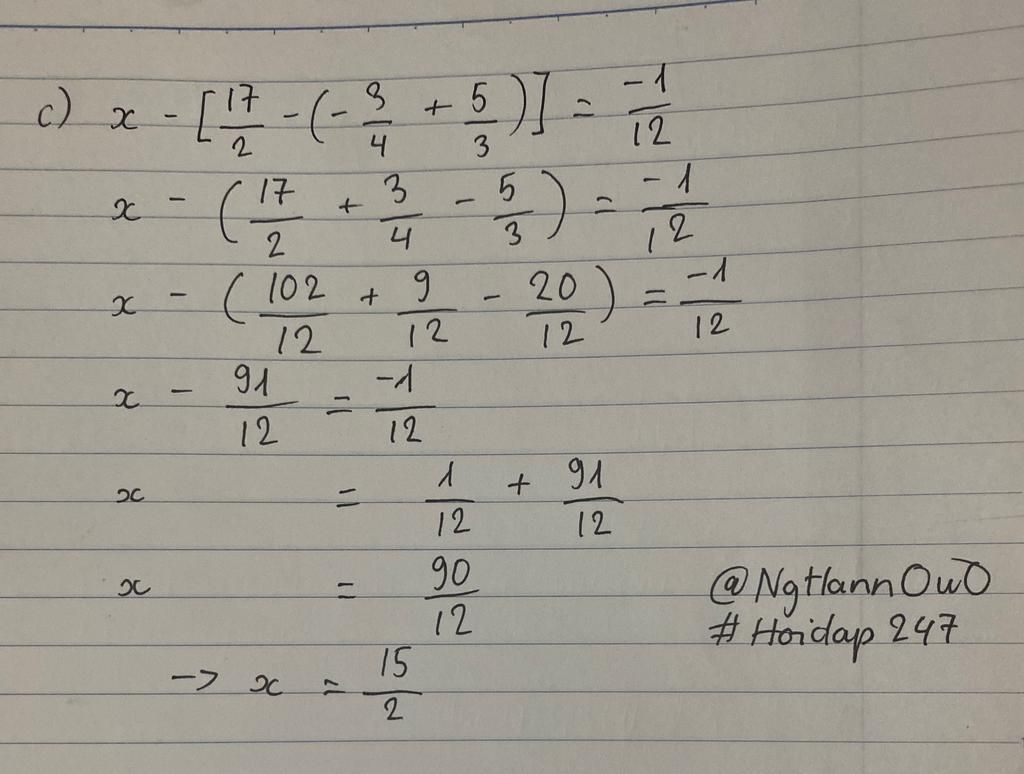 c) x - [17/2 - (-3/4 + 5/3)] = -1/12
x - (17/2 + 3/4 - 5/3) = -1/12
x - (102/12 + 9/12 - 20/12) = -1/12
x - 91/12 = -1/12
x = 1/12 + 91/12
x = 90/12
-> x = 15/2
@NgtlannOwO
#Hoidap 247